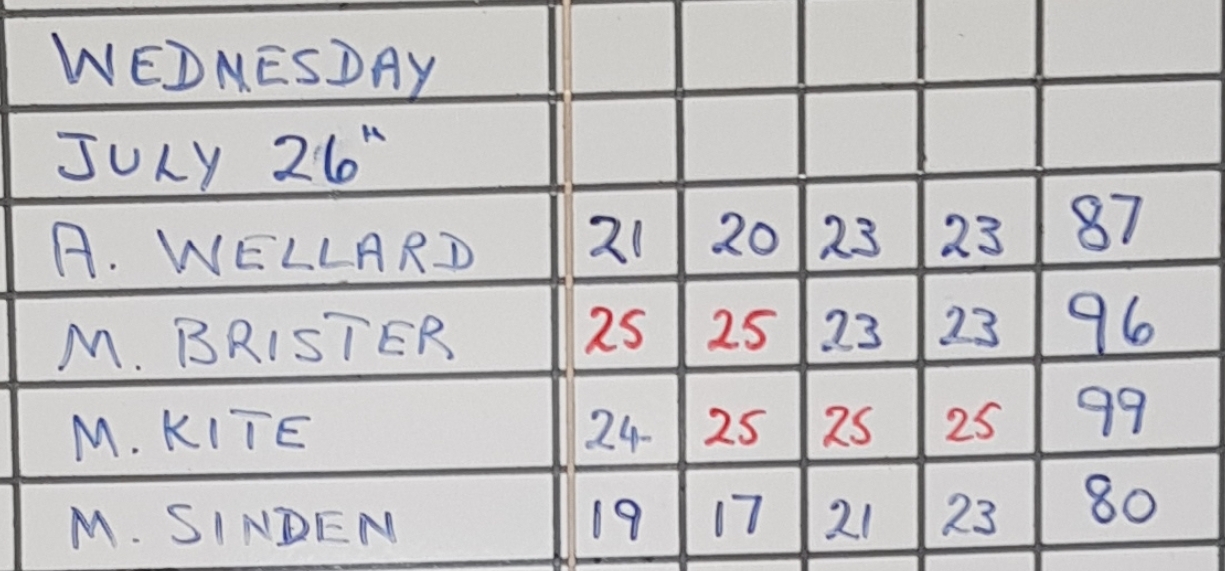 WEDNESDAY
JULY 26"
A. WELLARD 21 20 23 23 87
M. BRISTER 25 25 23 23 96
M. KITE 24 25 25 25 99
M. SINDEN 19 17 21 23 80